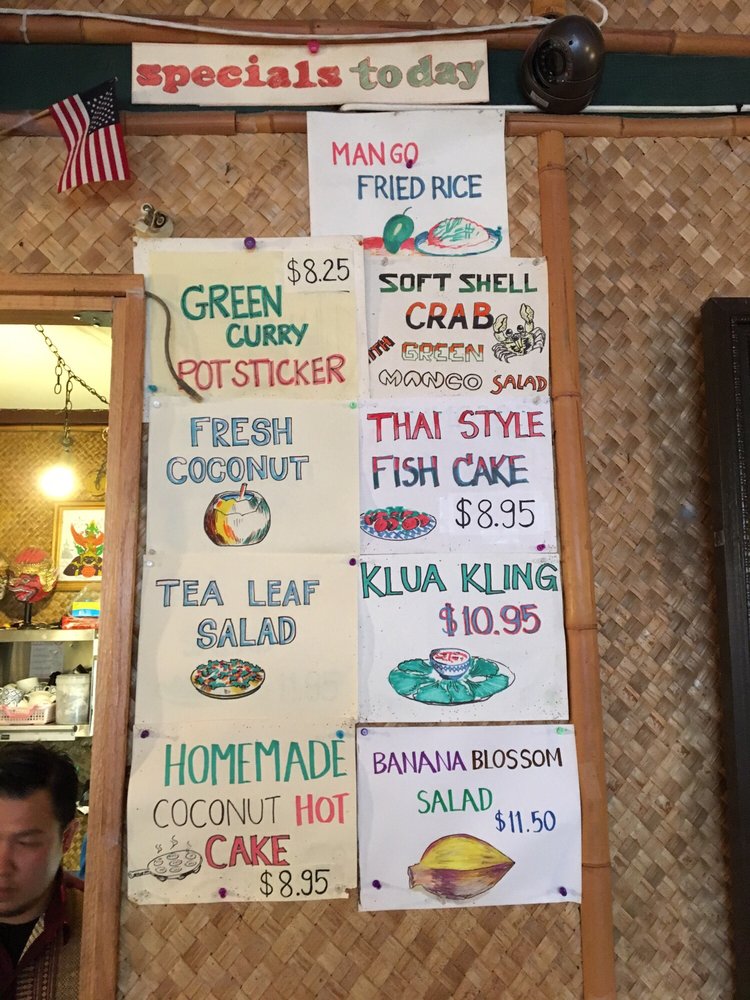 specials today
MANGO
FRIED RICE
$8.25
GREEN
CURRY
POTSTICKER
SOFT SHELL
CRAB
WITH GREEN
MANGO SALAD
FRESH
COCONUT
THAI STYLE
FISH CAKE
$8.95
TEA LEAF
SALAD
KLUA KLING
$10.95
HOMEMADE
COCONUT HOT
CAKE
$8.95
BANANA BLOSSOM
SALAD
$11.50